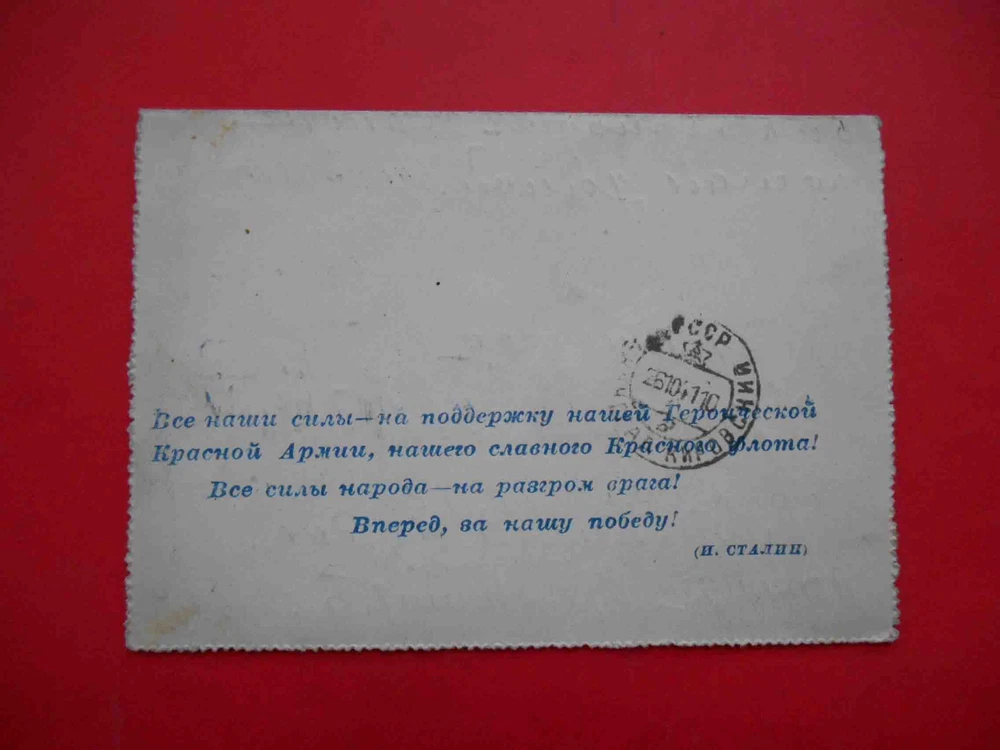 СССР
Все наши силы—на поддержку нашей Героической
Красной Армии, нашего славного Красного флота!
Все силы народа—на разгром врага!
Вперед, за нашу победу!
(И. СТАЛИН)